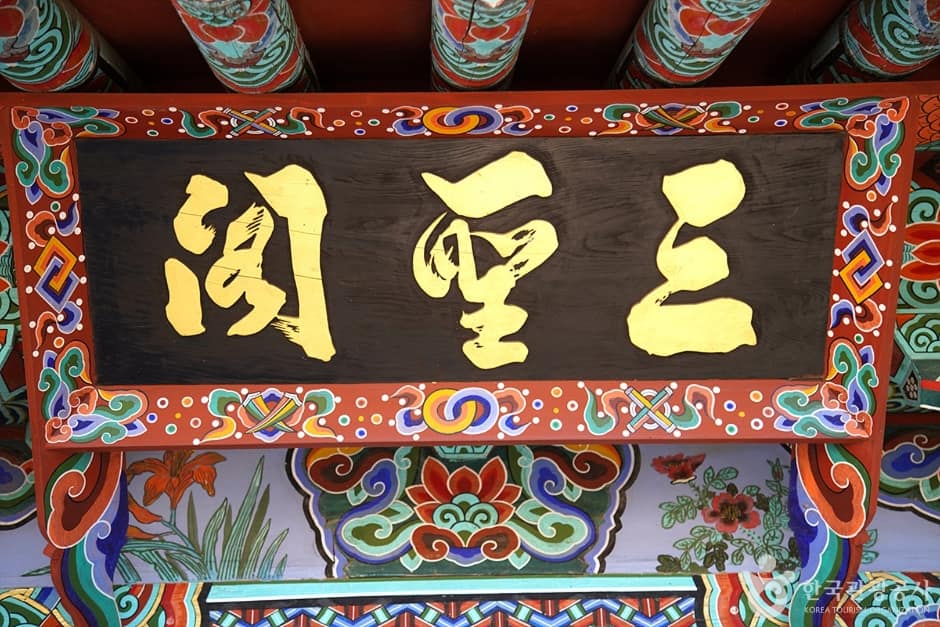 三聖閣
한국관광공사
KOREA TOURISM ORGANIZATION